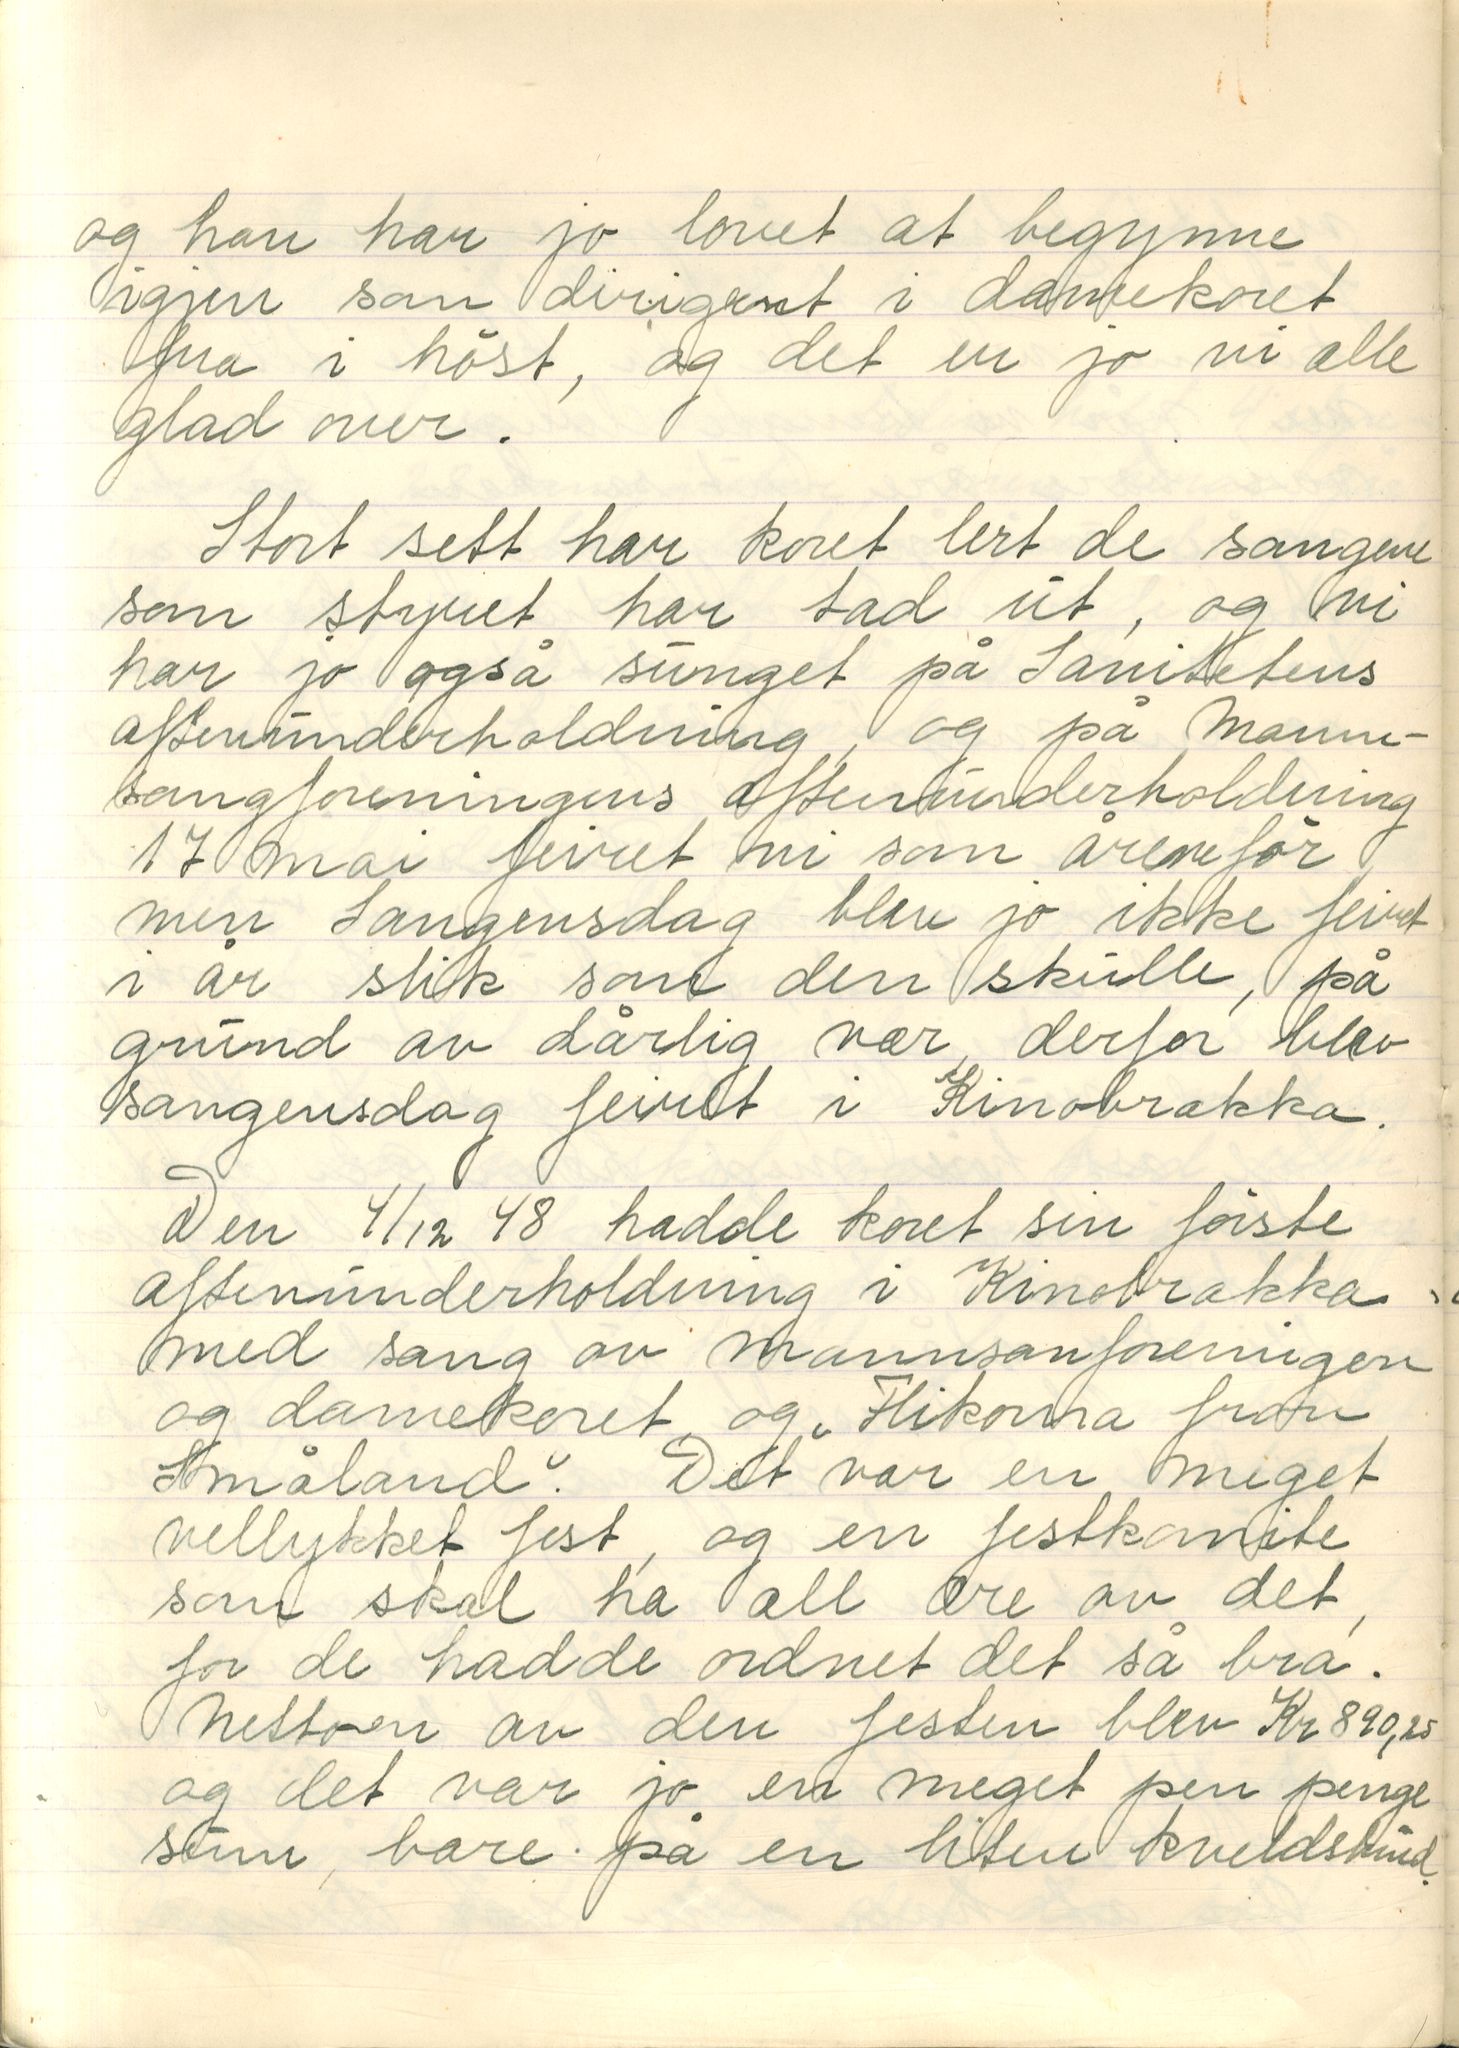 og han har jo lovet at begynne
igjen som dirigent i damekoret
fra i höst, og det er jo vi alle
glad over.
Stort sett har koret lert de sangene
som styret har tad ut, og vi
har jo også sunget på Sanitetens
aftenunderholdning, og på Manns-
sangforeningens aftenunderholdning
17 mai feiret vi som årene för,
men Sangensdag blev jo ikke feiret
i år slik som den skulle, på
grund av dårlig vær, derfor blev
sangensdag feiret i Kinobrakka.
Den 4/12 48 hadde koret sin förste
aftenunderholdning i Kinobrakka
med sang av mannsanforeningen
og damekoret, og „Flikorna fron
Småland". Det var en meget
vellykket fest, og en festkomite
som skal ha all ære av det,
for de hadde ordnet det så bra.
Nettoen av den festen blev Kr 890,25
og det var jo en meget pen penge
sum, bare på en liten kveldstund.